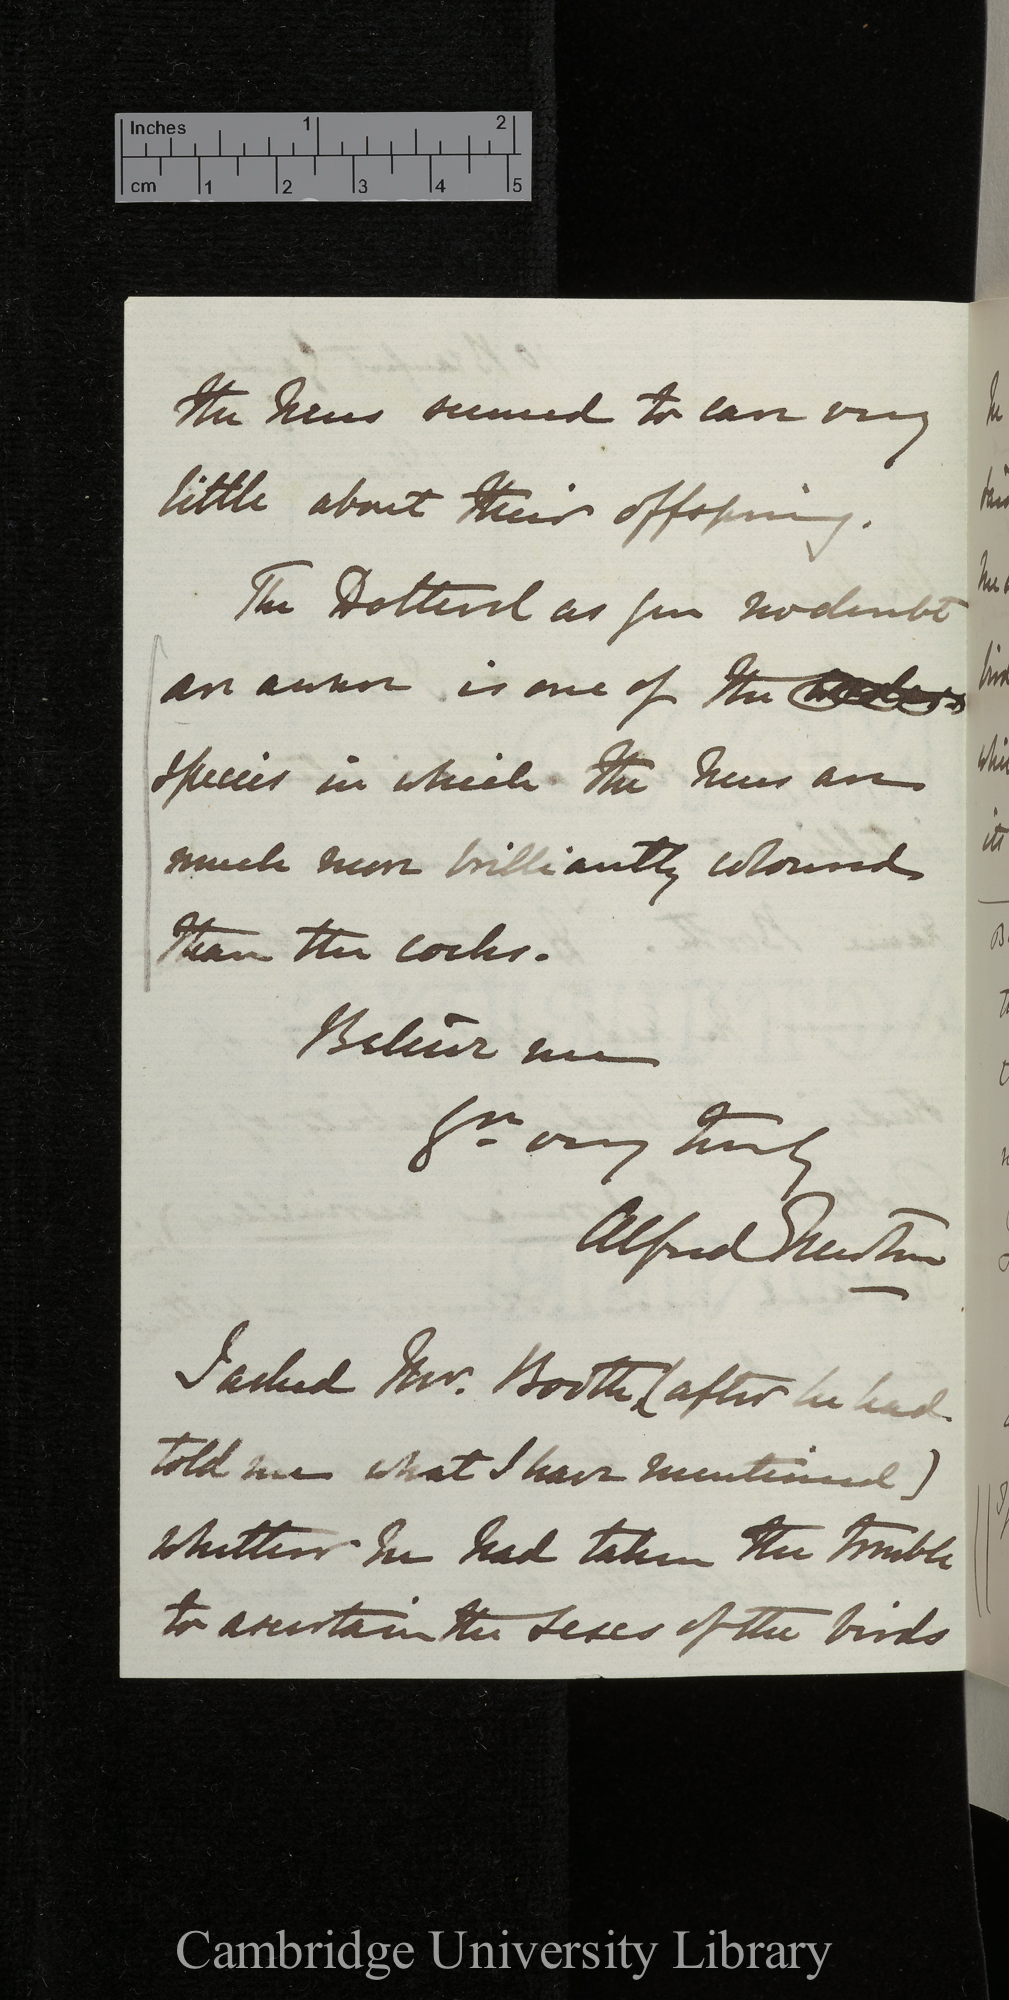 Inches 1 2
cm 1 2 3 4 5
the hens seemed to care very
little about their offspring.
The Dotterel as you no doubt
are aware is one of the
species in which the hens are
much more brilliantly coloured
than the cocks.
Believe me
Yrs very truly
Alfred Newton
I asked Mr. Booth, (after he had
told me what I have mentioned)
whether he had taken the trouble
to ascertain the sexes of the birds
Cambridge University Library